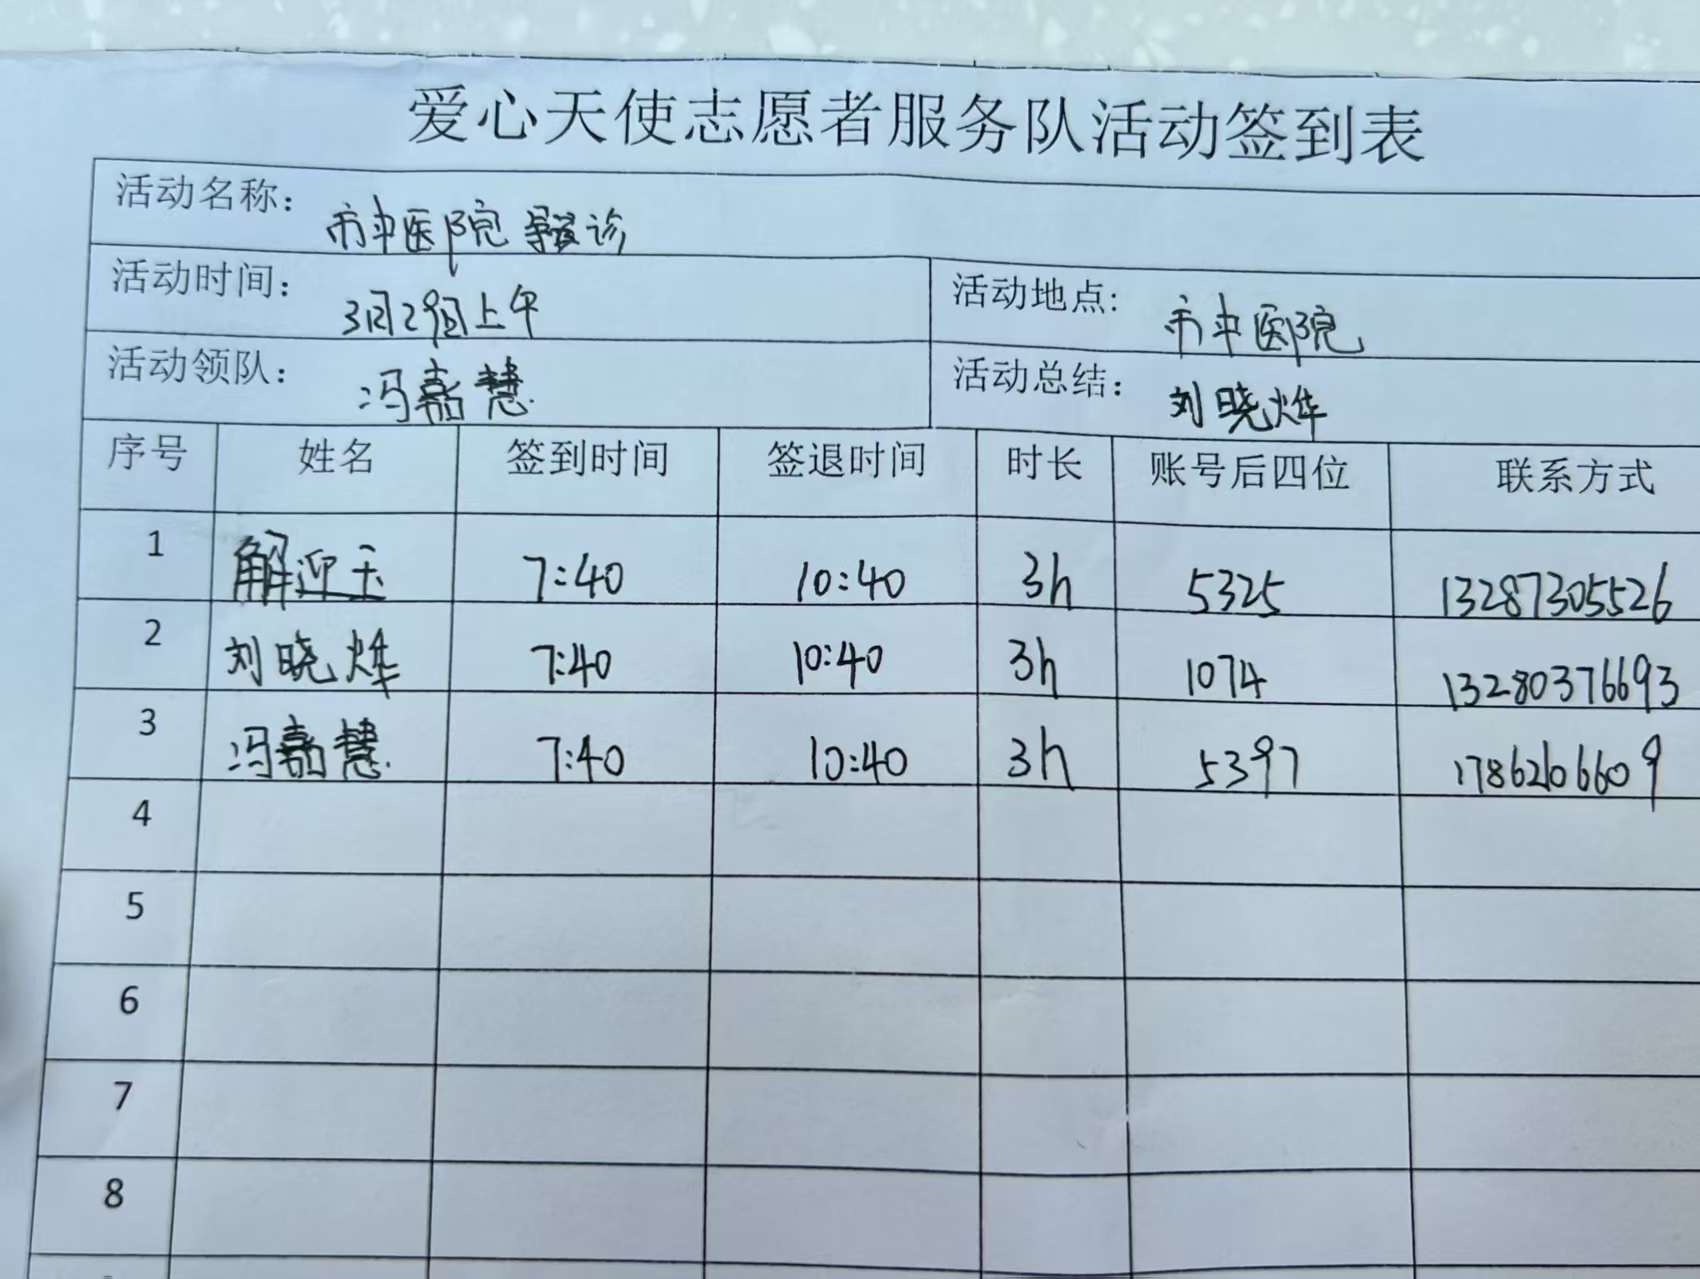 爱心天使志愿者服务队活动签到表
活动名称： 市中医院导诊
活动时间： 3月29日上午 活动地点: 市中医院
活动领队： 冯嘉慧 活动总结： 刘晓烨
序号 姓名 签到时间 签退时间 时长 账号后四位 联系方式
1 解迎玉 7:40 10:40 3h 5325 13287305526
2 刘晓烨 7:40 10:40 3h 1074 13280376693
3 冯嘉慧 7:40 10:40 3h 5397 17862106609
4
5
6
7
8